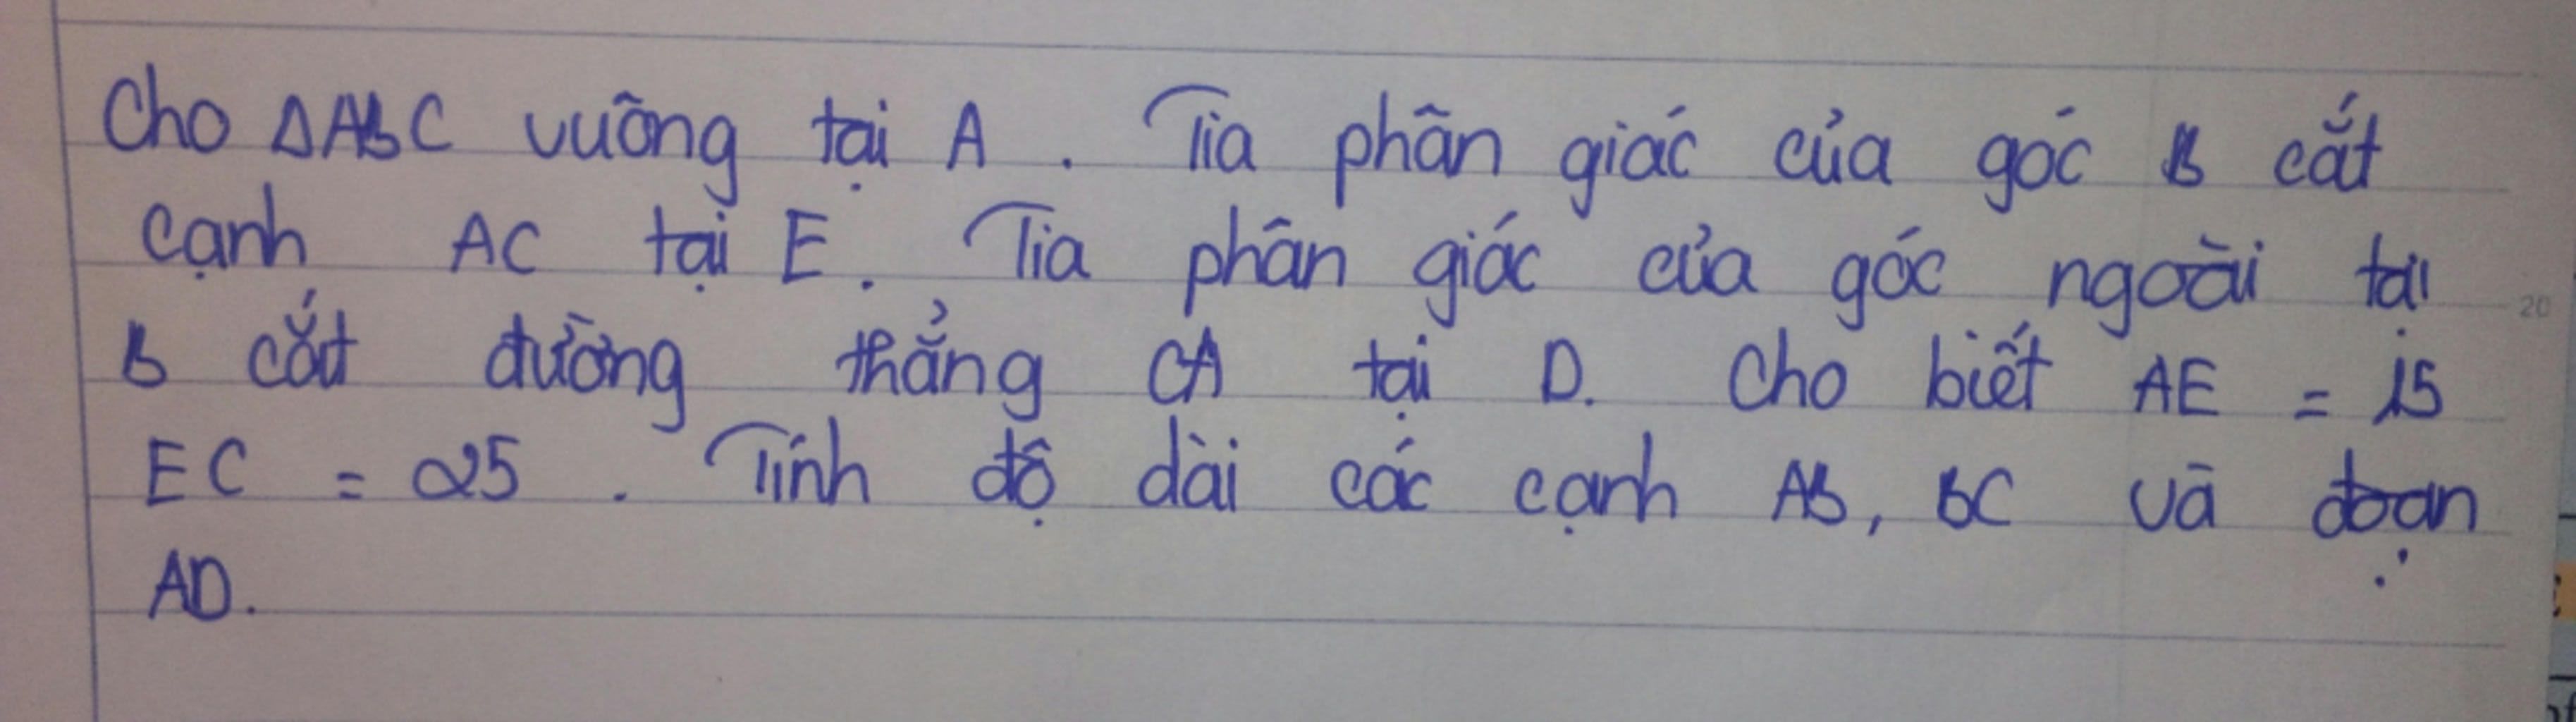 Cho ΔABC vuông tại A . Tia phân giác của góc B cắt
cạnh AC tại E. Tia phân giác của góc ngoài tại
B cắt đường thẳng CA tại D. Cho biết AE = 15
EC = 25 . Tính độ dài các cạnh AB, BC và đoạn
AD.
20